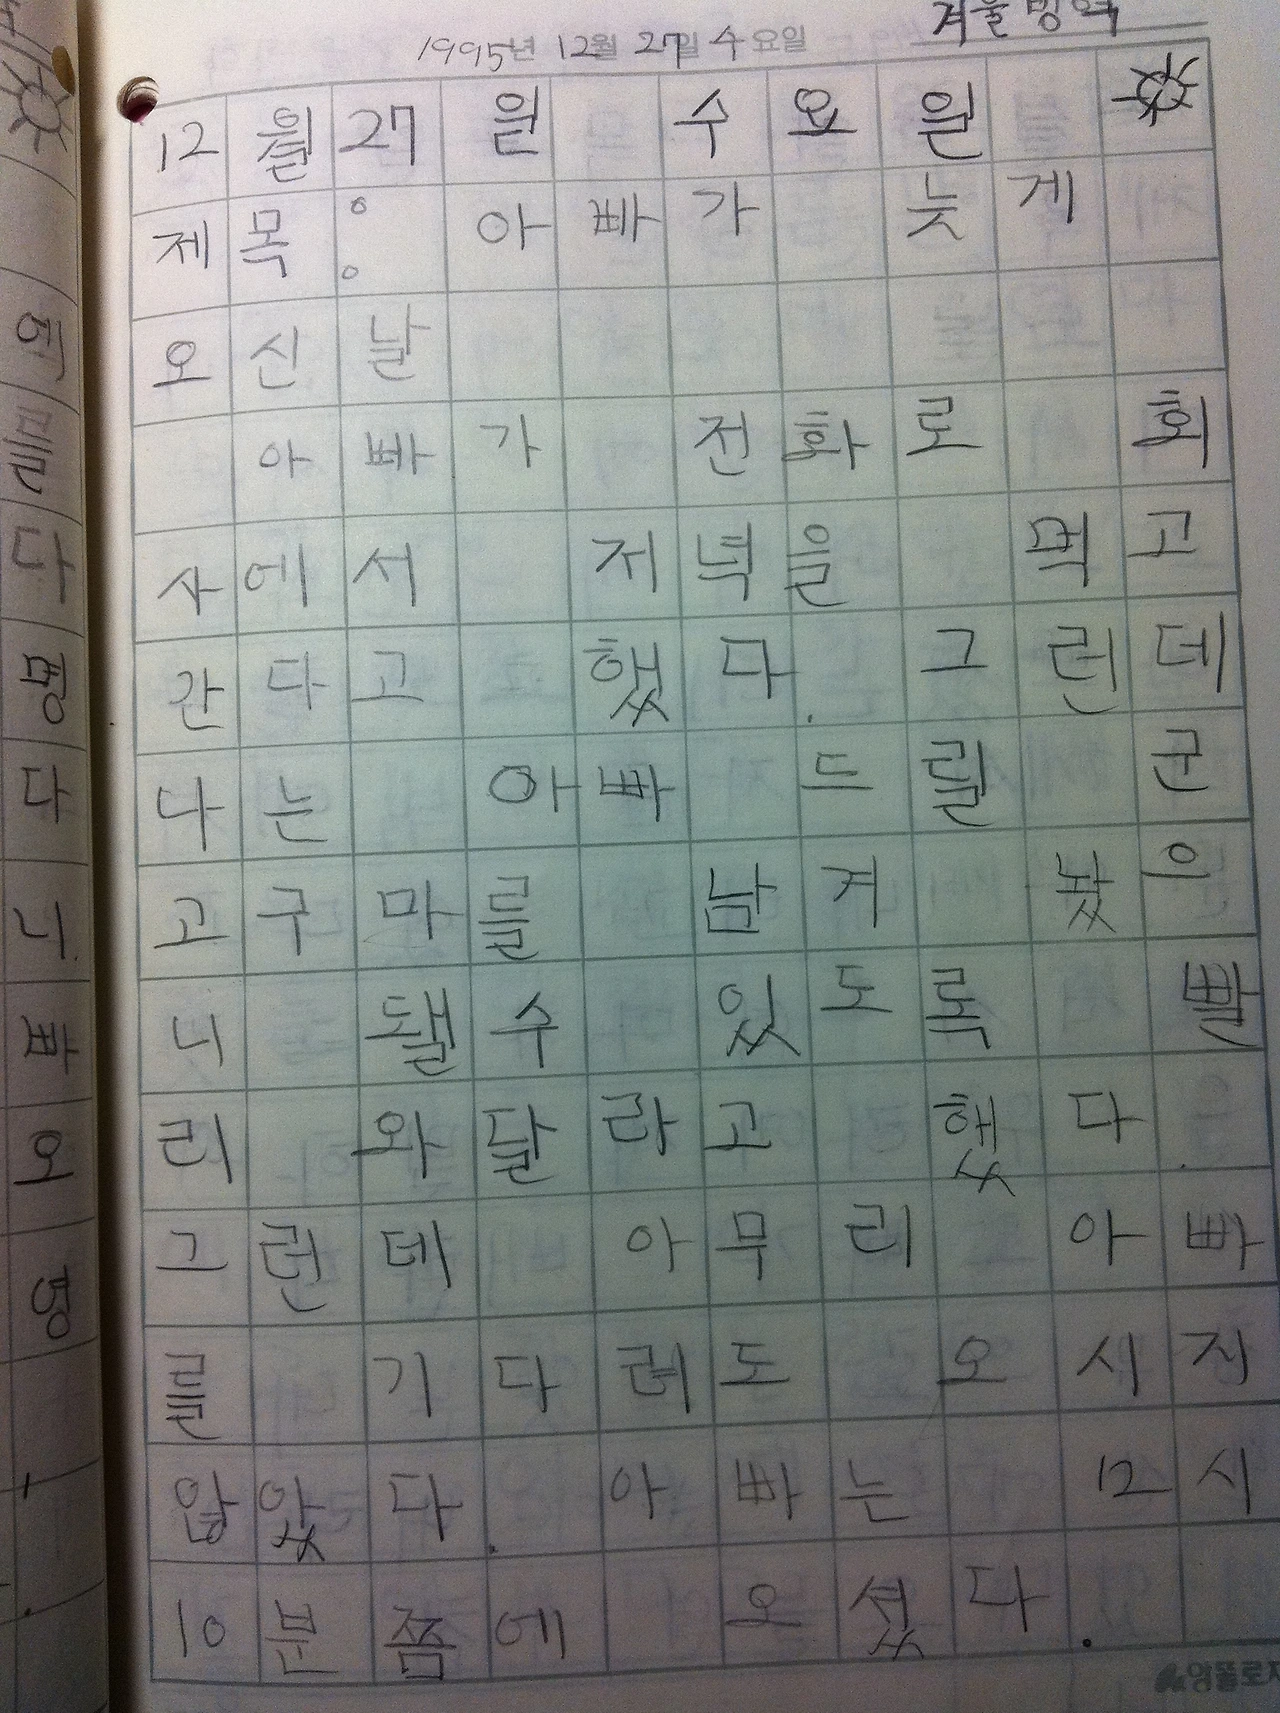 겨울 방학
1995년 12월 27일 수요일
12월 27일 수요일
제목: 아빠가 늦게
오신 날
아빠가 전화로 회
사에서 저녁을 먹고
간다고 했다. 그런데
나는 아빠 드릴 군
고구마를 남겨 놨으
니 됄수 있도록 빨
리 와달라고 했다.
그런데 아무리 아빠
를 기다려도 오시지
않았다. 아빠는 12시
10분쯤에 오셨다.